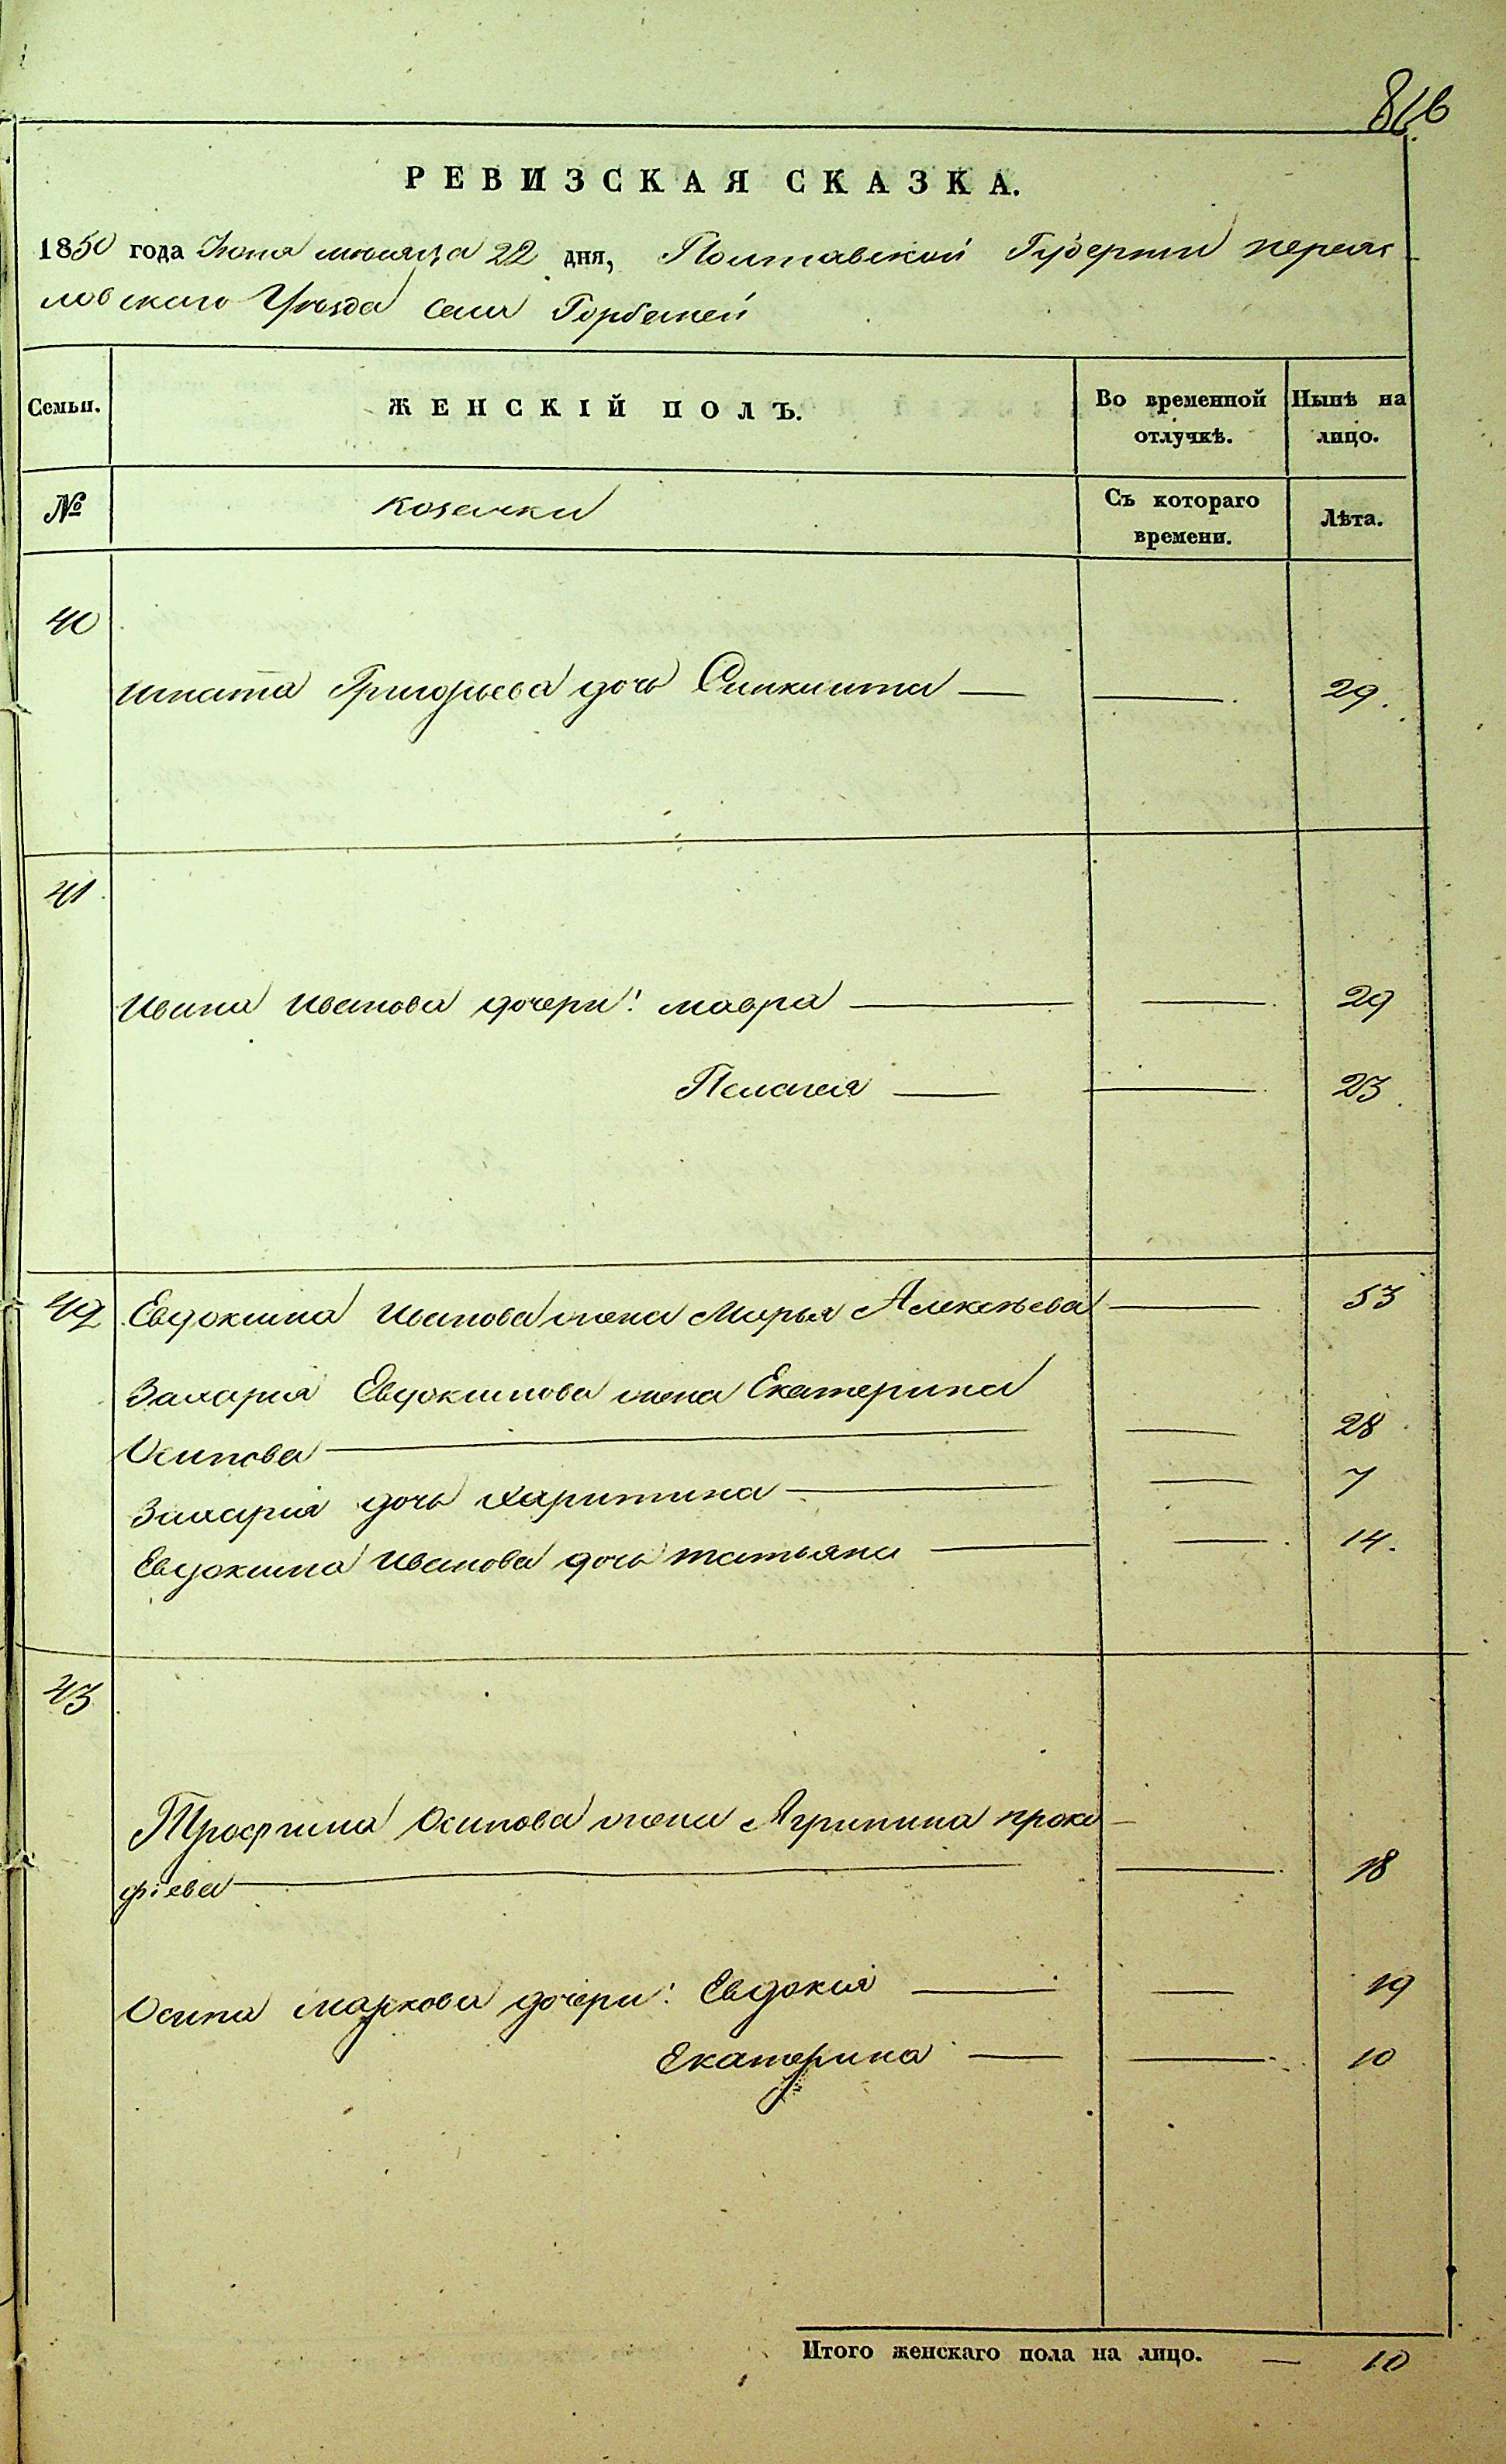 816
РЕВИЗСКАЯ СКАЗКА.
1850 года Июня мѣсяца 22 дня, Полтавской Губерніи переяс
ловскаго Уѣзда села Горбаней
Семьи. ЖЕНСКІЙ ПОЛЪ. Во временной отлучкѣ. Нынѣ на лицо.
№ козачки Съ котораго времени. Лѣта.
40
Игната Григорьева дочь — — 29.
41
Ивана Иванова дочери: мавра — — 29
Пелагея — — 23
42 Евдокима Иванова жена Марья Алексѣева — 53
Захарія Евдокимова жена Екатерина
Осипова — — 28
Захарія дочь харитина — — 7
Евдокима Иванова дочь татьяна — — 14.
43
Трофима Осипова жена Агрипина проко
фіева — — 18
Осипа маркова дочери: Евдокія — — 19
Екатерина — — 10
Итого женскаго пола на лицо. — 10